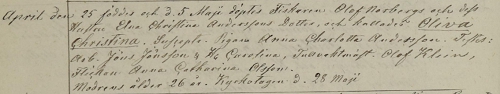 April den 25 föddes och d. 5 Maji döptes Fiskaren Olof Norbergs och dess
Hustru Etna Christina Anderssons Dotter, och kallades Oliva
Christina. Suscept: Pigan Anna Charlotta Andersson. Testes:
Arb. Jöns Jönsson & H. Carolina, Tullvaktmäst. Olof Klein,
Flickan Anna Catharina Olsson.
Modrens ålder 26 år. Kyrkotagen d. 28 Maji